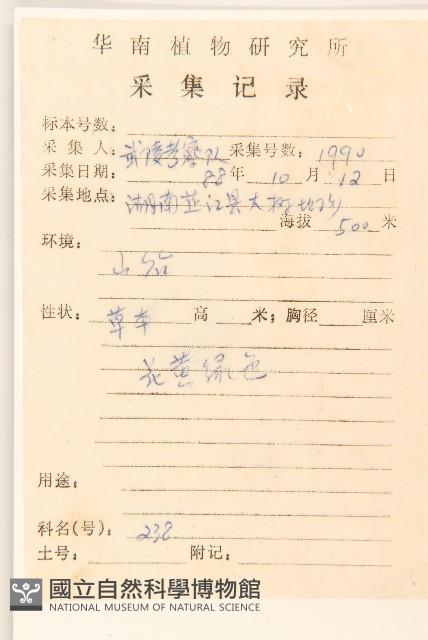 华南植物研究所
采集记录
标本号数：
采集人：武陵考察队 采集号数：1990
采集日期：88年10月12日
采集地点：湖南芷江县大树坳乡
海拔 500 米
环境：
山谷
性状：草本 高 米；胸径 厘米
花黄绿色
用途：
科名(号)：238
土号： 附记：
國立自然科學博物館
NATIONAL MUSEUM OF NATURAL SCIENCE